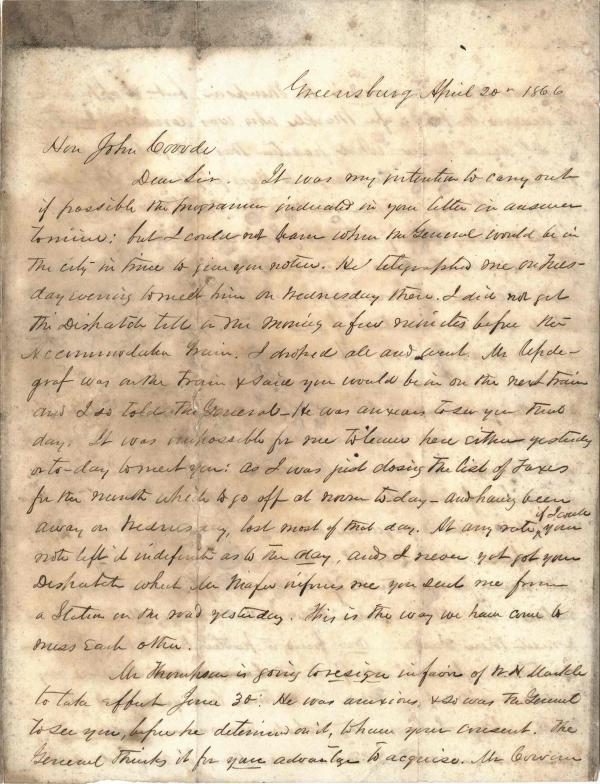 Greensburg April 20th 1866
Hon John Covode
Dear Sir. It was my intention to carry out
if possible the programme indicated in your letter in answer
to mine: but I could not learn when the General would be in
the city in time to give you notice. He telegraphed me on Tues-
day evening to meet him on Wednesday there. I did not get
the Dispatch till in the morning a few minutes before the
Accommodation train. I droped all and went. Mr Upde-
graf was on the train & said you would be in on the next train
and I so told the General - He was anxious to see you that
day. It was impossible for me to leave here either yesterday
or to-day to meet you: as I was just closing the list of Taxes
for the month which to go off at noon to-day - and having been
away on Wednesday, lost most of that day. At any rate, if I could your
note left it indefinite as to the day, and I never yet got your
Dispatch which Mr informs me you sent me from
a Station on the road yesterday. This is the way we have come to
miss each other.
Mr Thompson is going to resign in favor of W. H. Markle
to take effect June 30th. He was anxious, & so was the General
to see you, before he determined on it, to have your consent. The
General thinks it for your advantage to acquise. Mr Cowan